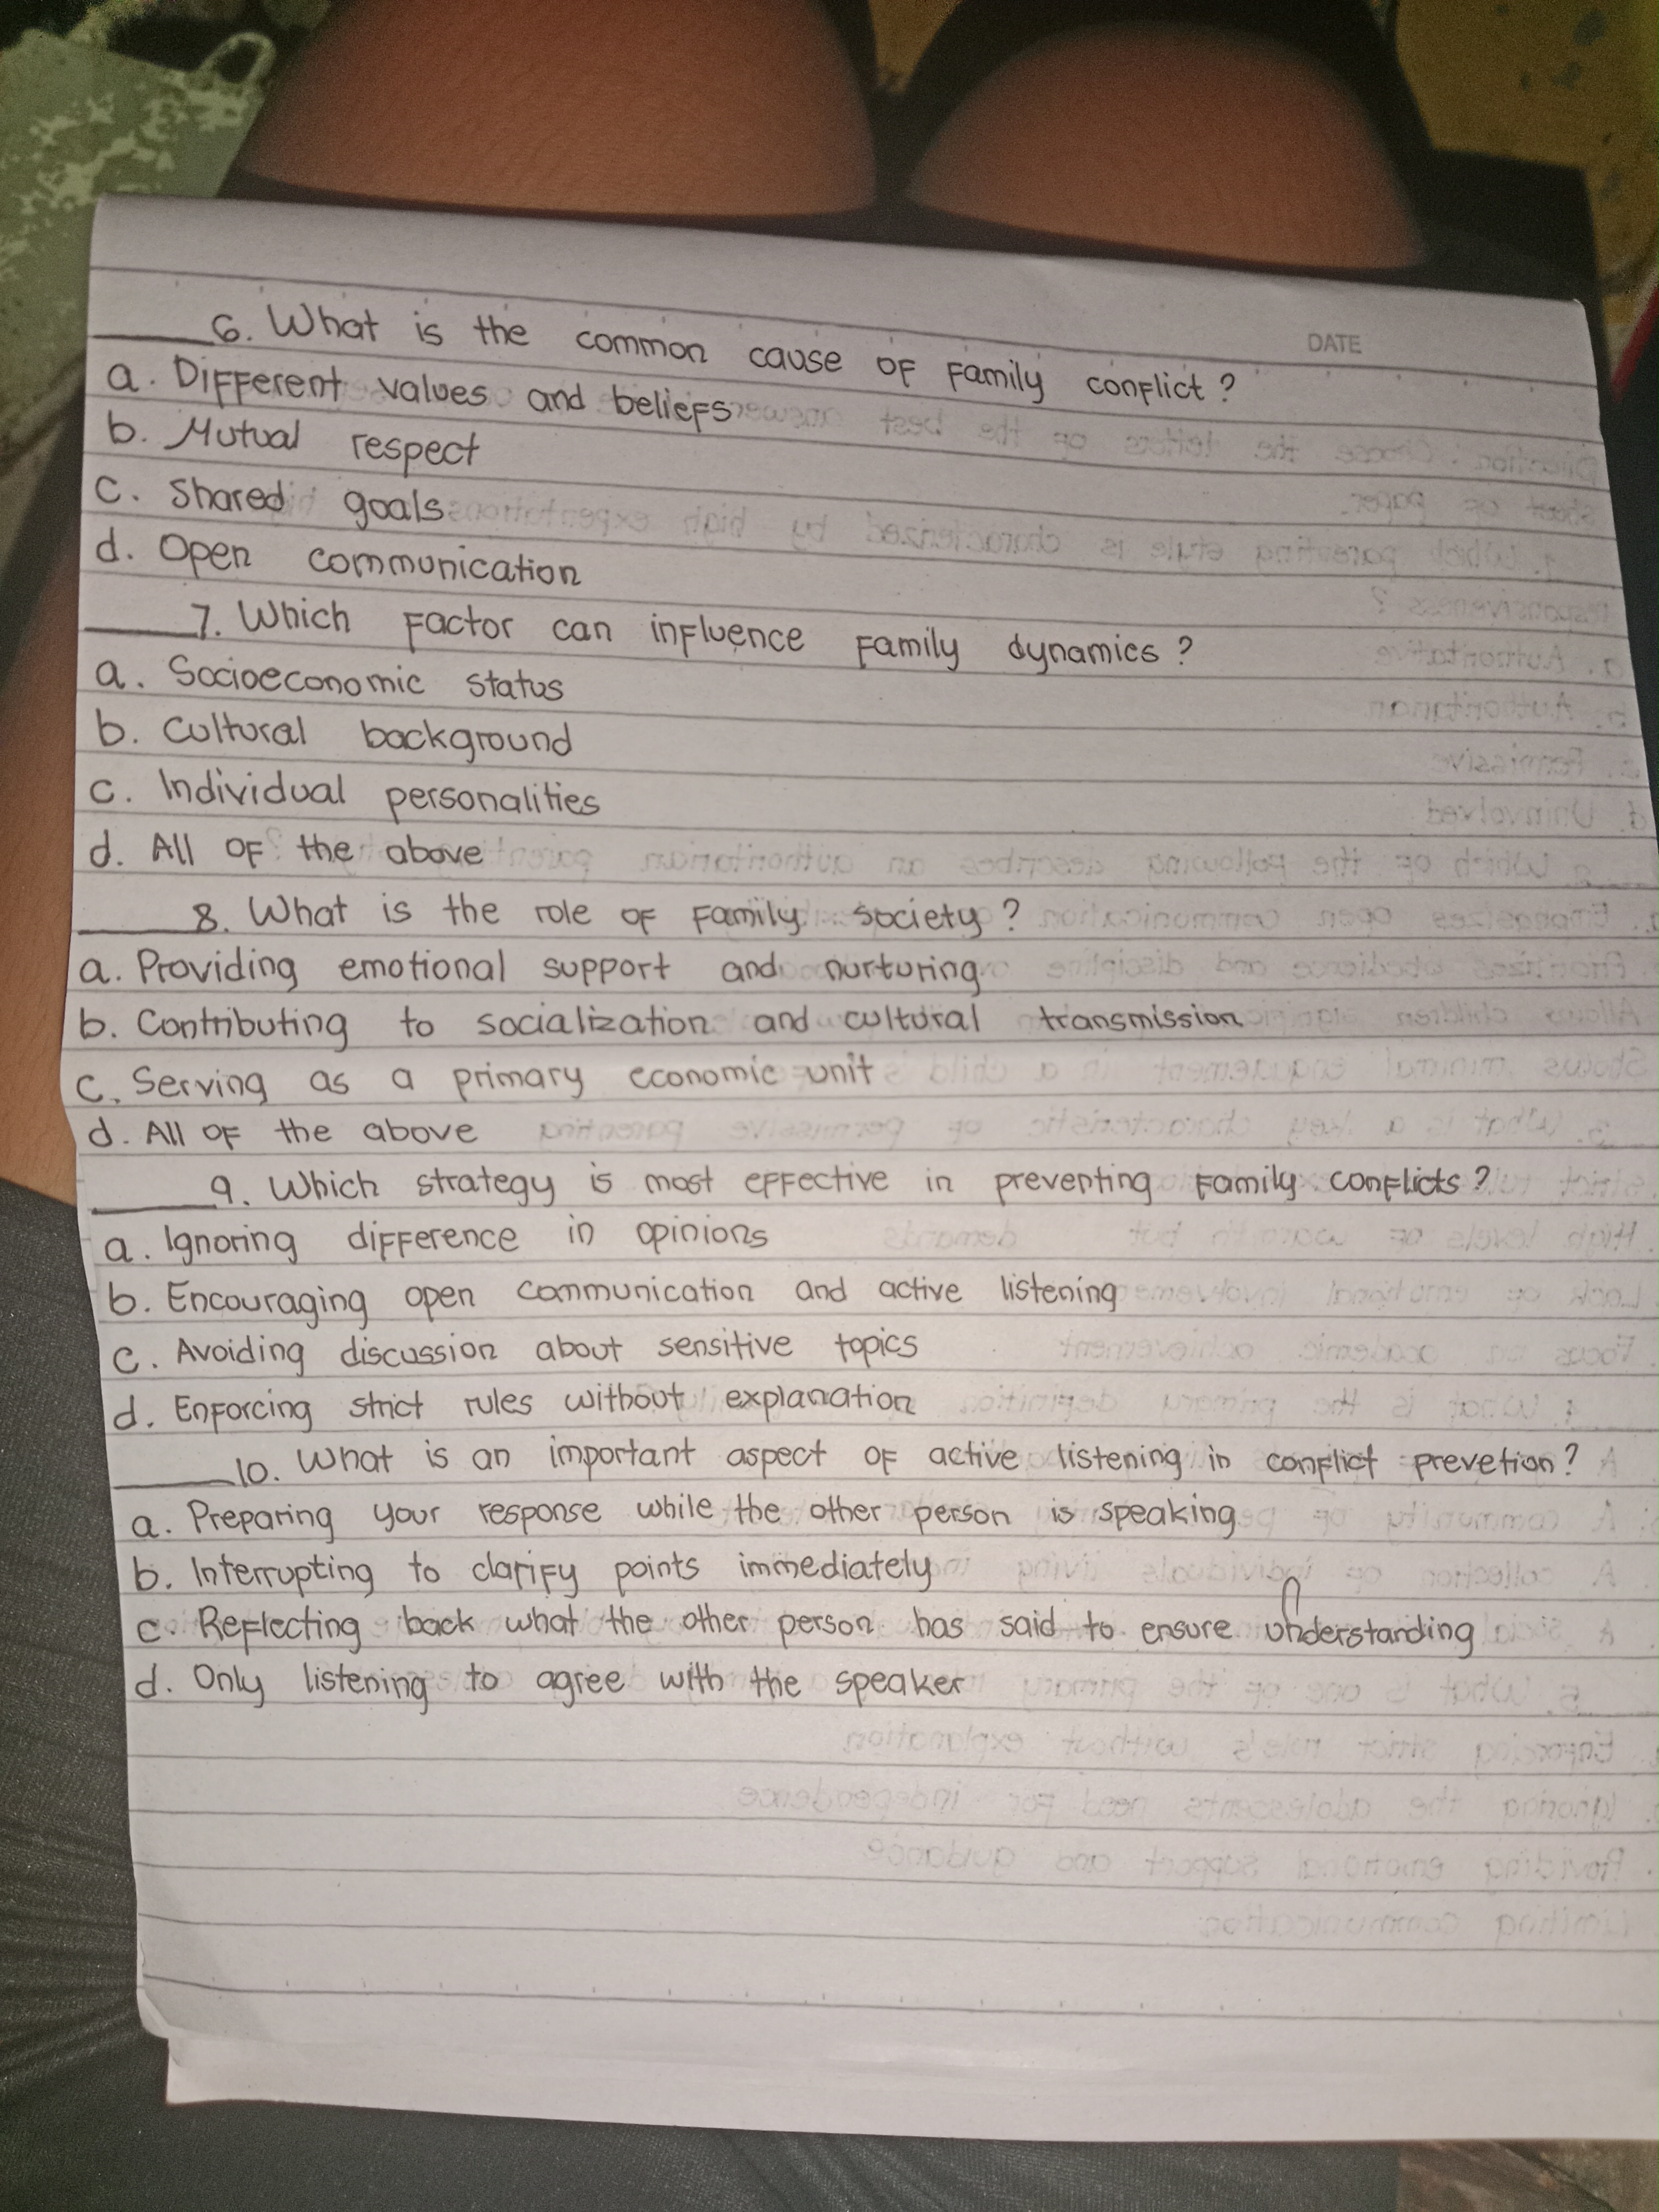 DATE
______6. What is the common cause of family conflict?
a. Different values and beliefs
b. Mutual respect
c. Shared goals
d. Open communication
______7. Which factor can influence family dynamics?
a. Socioeconomic status
b. Cultural background
c. Individual personalities
d. All of the above
______8. What is the role of family society?
a. Providing emotional support and nurturing
b. Contributing to socialization and cultural transmission
c. Serving as a primary economic unit
d. All of the above
______9. Which strategy is most effective in preventing family conflicts?
a. Ignoring difference in opinions
b. Encouraging open communication and active listening
c. Avoiding discussion about sensitive topics
d. Enforcing strict rules without explanation
______10. What is an important aspect of active listening in conflict prevetion?
a. Preparing your response while the other person is speaking
b. Interrupting to clarify points immediately
c. Reflecting back what the other person has said to ensure understanding
d. Only listening to agree with the speaker